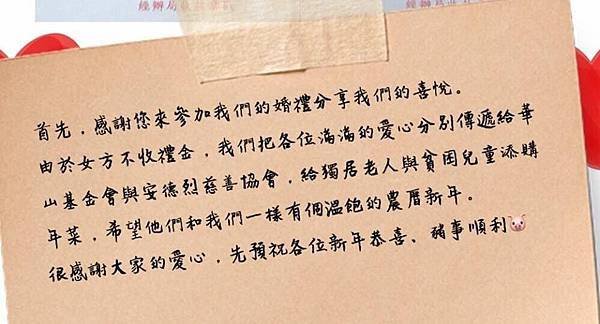 首先，感謝您來參加我們的婚禮分享我們的喜悅。
由於女方不收禮金，我們把各位滿滿的愛心分別傳遞給華
山基金會與安德烈慈善協會，給獨居老人與貧困兒童添購
年菜，希望他們和我們一樣有個溫飽的農曆新年。
很感謝大家的愛心，先預祝各位新年恭喜、豬事順利🐷